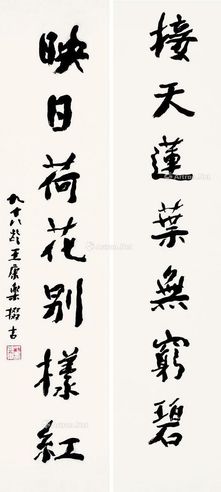 接天蓮葉無窮碧
映日荷花別樣紅
九十八叟王康樂撫古